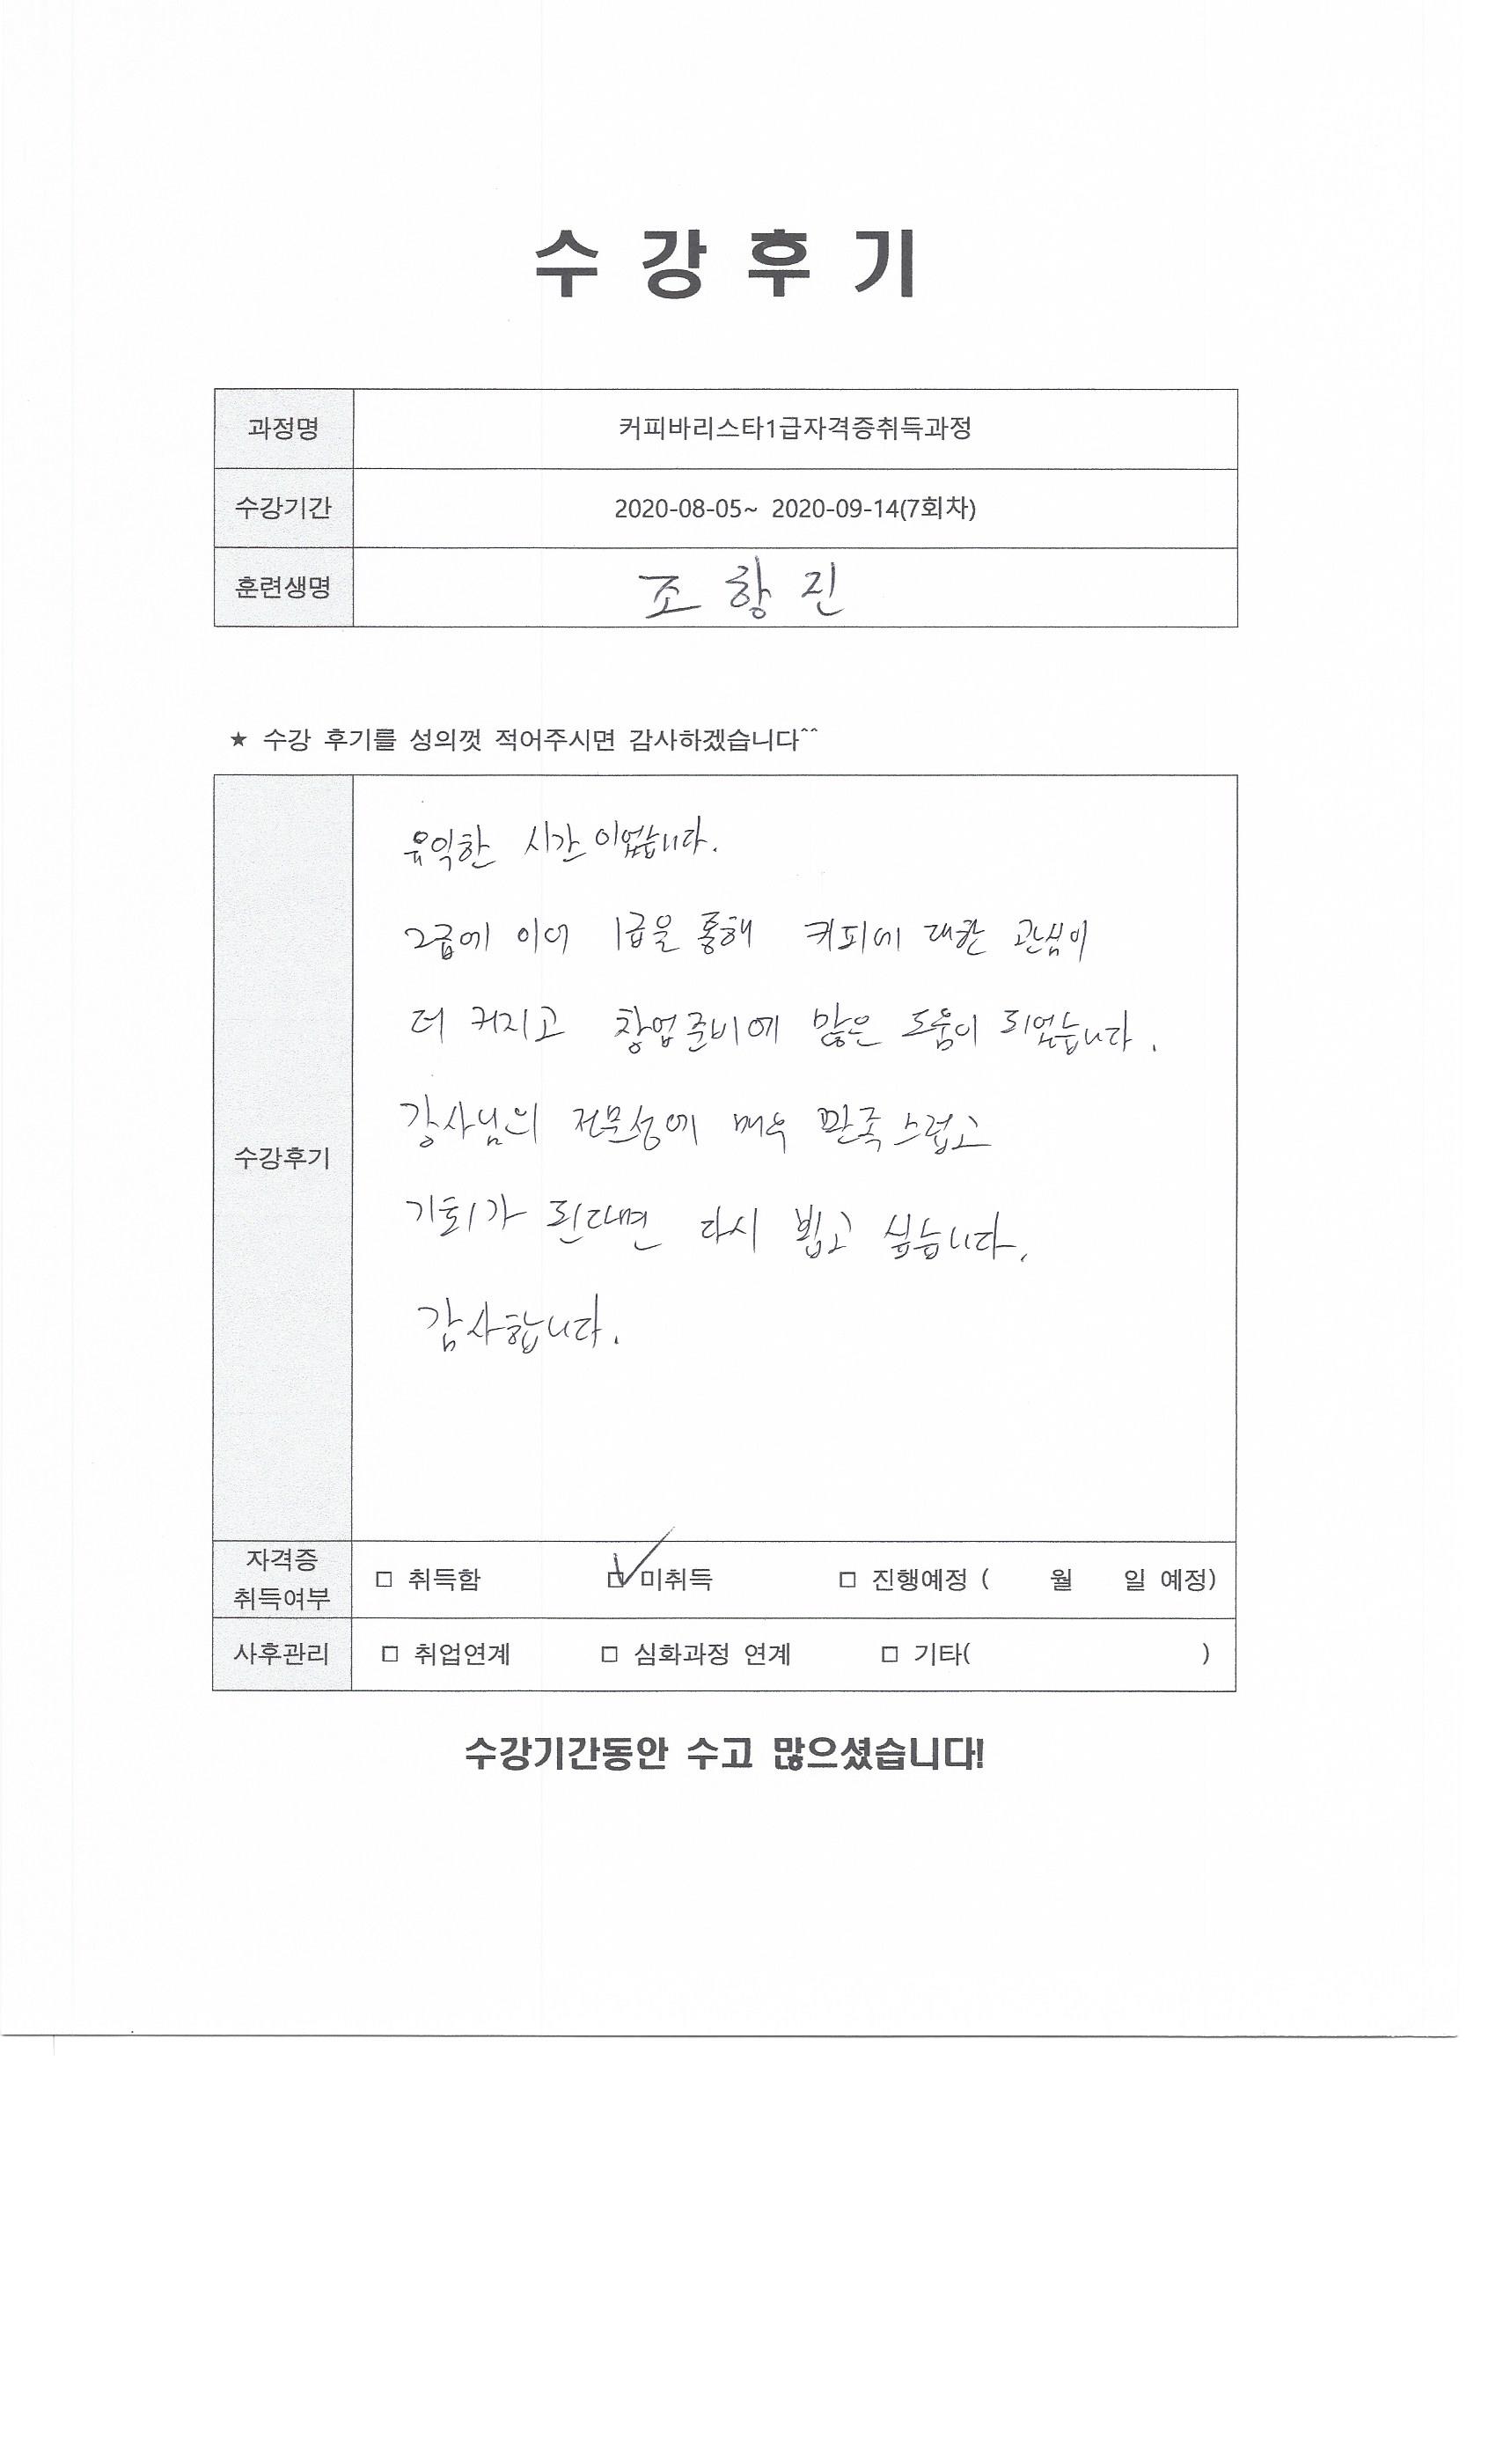 수 강 후 기
과정명 커피바리스타1급자격증취득과정
수강기간 2020-08-05~ 2020-09-14(7회차)
훈련생명 조 항 진
★ 수강 후기를 성의껏 적어주시면 감사하겠습니다^^
수강후기
유익한 시간이었습니다.
2급에 이어 1급을 통해 커피에 대한 관심이
더 커지고 창업준비에 많은 도움이 되었습니다.
강사님의 전문성에 매우 만족스럽고
기회가 된다면 다시 뵙고 싶습니다.
감사합니다.
자격증
취득여부
□ 취득함 ☑ 미취득 □ 진행예정 ( 월 일 예정)
사후관리 □ 취업연계 □ 심화과정 연계 □ 기타( )
수강기간동안 수고 많으셨습니다!